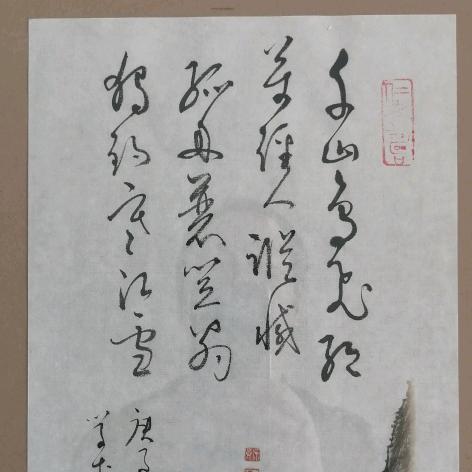 千山鸟飞绝
万径人踪灭
孤舟蓑笠翁
独钓寒江雪
庚子